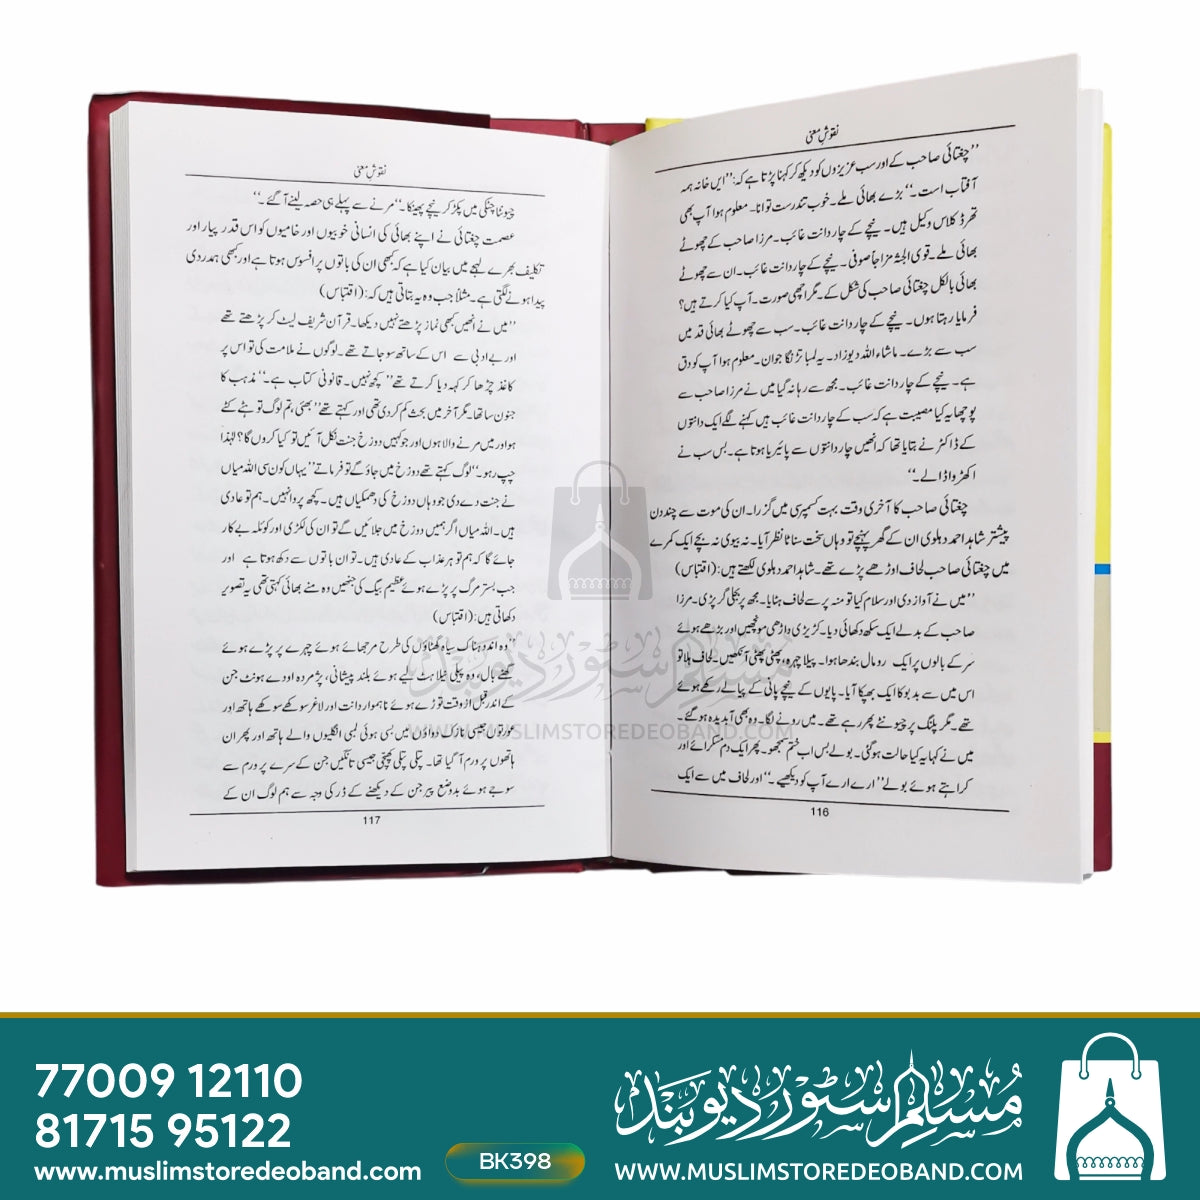 نقوشِ معنی
’’چغتائی صاحب کے اور سب عزیزوں کو دیکھ کر کہنا پڑتا ہے کہ: ’’ایں خانہ ہمہ
آفتاب است۔‘‘ بڑے بھائی ملے۔ خوب تندرست توانا۔ معلوم ہوا آپ بھی
تھرڈ کلاس وکیل ہیں۔ نیچے کے چار دانت غائب۔ مرزا صاحب کے چھوٹے
بھائی ملے۔ قوی الجثہ مزاجاً صوفی۔ نیچے کے چار دانت غائب۔ ان سے چھوٹے
بھائی بالکل چغتائی صاحب کی شکل کے۔ مگر اچھی صورت۔ آپ کیا کرتے ہیں؟
فرمایا رہتا ہوں۔ نیچے کے چار دانت غائب۔ سب سے چھوٹے بھائی قد میں
سب سے بڑے۔ ماشاء اللہ دیوزاد۔ یہ لمبا تڑنگا جوان۔ معلوم ہوا آپ کو دق
ہے۔ نیچے کے چار دانت غائب۔ مجھ سے رہا نہ گیا میں نے مرزا صاحب سے
پوچھا یہ کیا مصیبت ہے کہ سب کے چار دانت غائب ہیں کہنے لگے ایک دانتوں
کے ڈاکٹر نے بتایا تھا کہ انھیں چار دانتوں سے پائیریا ہوتا ہے۔ بس سب نے
اکھڑوا ڈالے۔‘‘
چغتائی صاحب کا آخری وقت بہت کسمپرسی میں گزرا۔ ان کی موت سے چند دن
پیشتر شاہد احمد دہلوی ان کے گھر پہنچے تو وہاں سخت سناٹا نظر آیا۔ نہ بیوی نہ بچے ایک کمرے
میں چغتائی صاحب لحاف اوڑھے پڑے تھے۔ شاہد احمد دہلوی لکھتے ہیں: (اقتباس)
’’میں نے آواز دی اور سلام کیا تو منہ پر سے لحاف ہٹایا۔ مجھ پر بجلی گر پڑی۔ مرزا
صاحب کے بدلے ایک سکھ دکھائی دیا۔ کڑبڑی داڑھی مونچھیں اور بڑھے ہوئے
سر کے بالوں پر ایک رومال بندھا ہوا۔ پیلا چہرہ، پھٹی پھٹی آنکھیں۔ لحاف ہلا تو
اس میں سے بدبو کا ایک بھپکا آیا۔ پایوں کے نیچے پانی کے پیالے رکھے ہوئے
تھے۔ مگر پلنگ پر چیونٹے پھر رہے تھے۔ میں رونے لگا۔ وہ بھی آبدیدہ ہو گئے۔
میں نے کہا یہ کیا حالت ہو گئی۔ بولے بس اب ختم سمجھو۔ پھر ایک دم مسکرائے اور
کراہتے ہوئے بولے ’’ارے ارے آپ کو دیکھیے۔‘‘ اور لحاف میں سے ایک
116
نقوشِ معنی
چیونٹا چٹکی میں پکڑ کر نیچے پھینکا۔ ’’مرنے سے پہلے ہی حصہ لینے آ گئے۔‘‘
عصمت چغتائی نے اپنے بھائی کی انسانی خوبیوں اور خامیوں کو اس قدر پیار اور
تکلیف بھرے لہجے میں بیان کیا ہے کہ کبھی ان کی باتوں پر افسوس ہوتا ہے اور کبھی ہمدردی
پیدا ہونے لگتی ہے۔ مثلاً جب وہ یہ بتاتی ہیں کہ: (اقتباس)
’’میں نے انھیں کبھی نماز پڑھتے نہیں دیکھا۔ قرآن شریف لیٹ کر پڑھتے تھے
اور بے ادبی سے اس کے ساتھ سو جاتے تھے۔ لوگوں نے ملامت کی تو اس پر
کاغذ چڑھا کر کہہ دیا کرتے تھے ’’کچھ نہیں۔ قانونی کتاب ہے۔‘‘ مذہب کا
جنون سا تھا۔ مگر آخر میں بحث کم کر دی تھی اور کہتے تھے ’’بھئی، تم لوگ تو ہٹے کٹے
ہو اور میں مرنے والا ہوں اور جو کہیں دوزخ جنت نکل آئیں تو کیا کروں گا؟ لہٰذا
چپ رہو۔‘‘ لوگ کہتے تھے دوزخ میں جاؤ گے تو فرماتے ’’یہاں کون سی اللہ میاں
نے جنت دے دی جو وہاں دوزخ کی دھمکیاں ہیں۔ کچھ پروا نہیں۔ ہم تو عادی
ہیں۔ اللہ میاں اگر ہمیں دوزخ میں جلائیں گے تو ان کی لکڑی اور کوئلہ بے کار
جائے گا کہ ہم تو ہر عذاب کے عادی ہیں۔ تو ان باتوں سے دکھ ہوتا ہے اور
جب بستر مرگ پر پڑے ہوئے عظیم بیگ کی جنھیں وہ منے بھائی کہتی تھی یہ تصویر
دکھاتی ہیں: (اقتباس)
’’وہ اندوہناک سیاہ گھٹاؤں کی طرح مرجھائے ہوئے چہرے پر پڑے ہوئے
گھنے بال، وہ پیلی نیلاہٹ لیے ہوئے بلند پیشانی، پژمردہ اودے ہونٹ جن
کے اندر قبل از وقت توڑے ہوئے ناہموار دانت اور لاغر سوکھے سوکھے ہاتھ اور
عورتوں جیسی نازک دواؤں میں بسی ہوئی لمبی انگلیوں والے ہاتھ اور پھر ان
ہاتھوں پر ورم آ گیا تھا۔ پتلی پتلی کھپچی جیسی ٹانگیں جن کے سرے پر ورم سے
سوجے ہوئے بدوضع پیر جن کے دیکھنے کے ڈر کی وجہ سے ہم لوگ ان کے
117
مسلم سٹور دیوبند
WWW.MUSLIMSTOREDEOBAND.COM
77009 12110
81715 95122
www.muslimstoredeoband.com
BK398
مسلم سٹور دیوبند
WWW.MUSLIMSTOREDEOBAND.COM